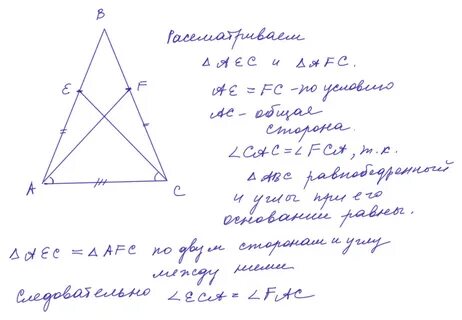 B
Рассматриваем
△AEC и △AFC.
E
F
AE = FC - по условию
AC - общая
сторона.
∠CAC = ∠FCA, т.к.
△ABC равнобедренный
и углы при его
основании равны.
A
C
△AEC = △AFC по двум сторонам и углу
между ними
Следовательно ∠ECA = ∠FAC